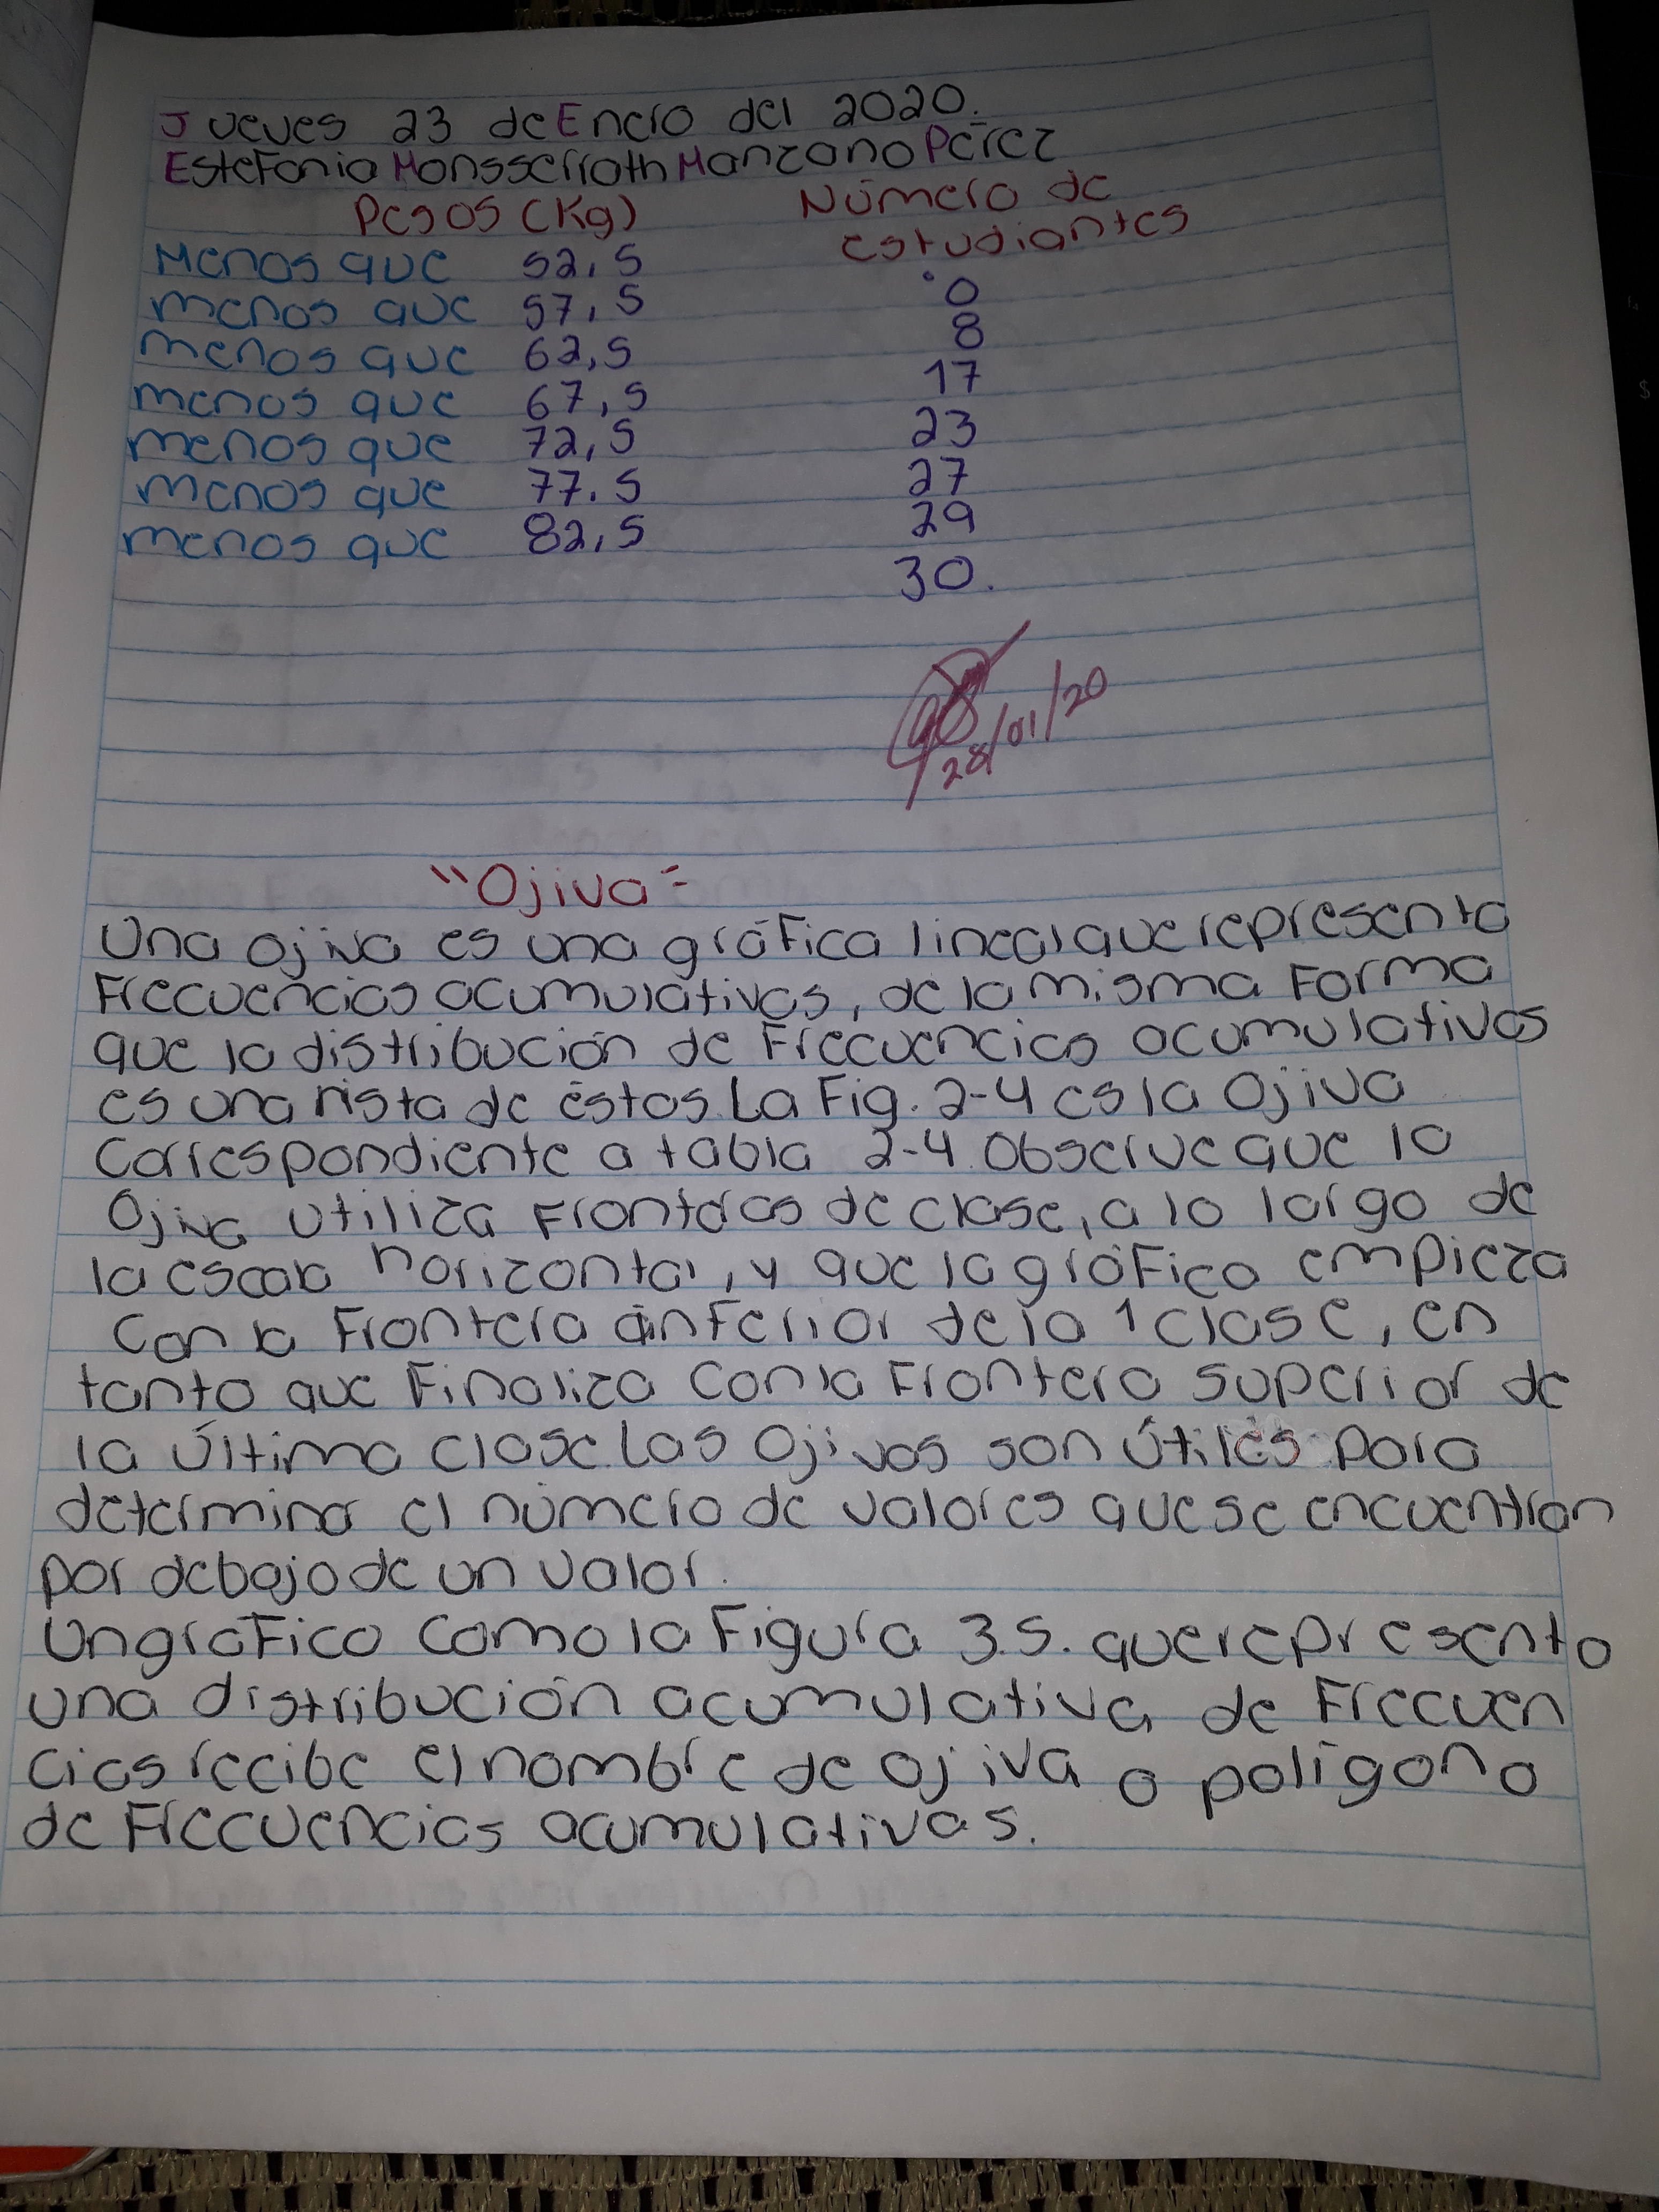 Jueves 23 de Enero del 2020.
Estefania Monsserrath Manzano Pérez
Pesos (Kg) Número de estudiantes
Menos que 52,5 0
menos que 57,5 8
menos que 62,5 17
menos que 67,5 23
menos que 72,5 27
menos que 77.5 29
menos que 82,5 30.
28/01/20
"Ojiva"
Una ojiva es una gráfica lineal que representa
Frecuencias acumulativas, de la misma Forma
que la distribución de Frecuencias acumulativas
es una rista de éstas La Fig. 2-4 es la Ojiva
Correspondiente a tabla 2-4. Observe que la
Ojiva utiliza Fronteras de clase, a lo largo de
la escala horizontal, y que la gráFica empieza
Con la Frontera inferior de la 1 clase, en
tanto que Finaliza Con la Frontera superior de
la última clase. Las Ojivas son útiles para
determinar el número de valores que se encuentran
por debajo de un valor.
Un gráFico Como la Figura 3.5. que representa
una distribución acumulativa de Frecuen
cias recibe el nombre de ojiva o polígono
de Frecuencias acumulativas.